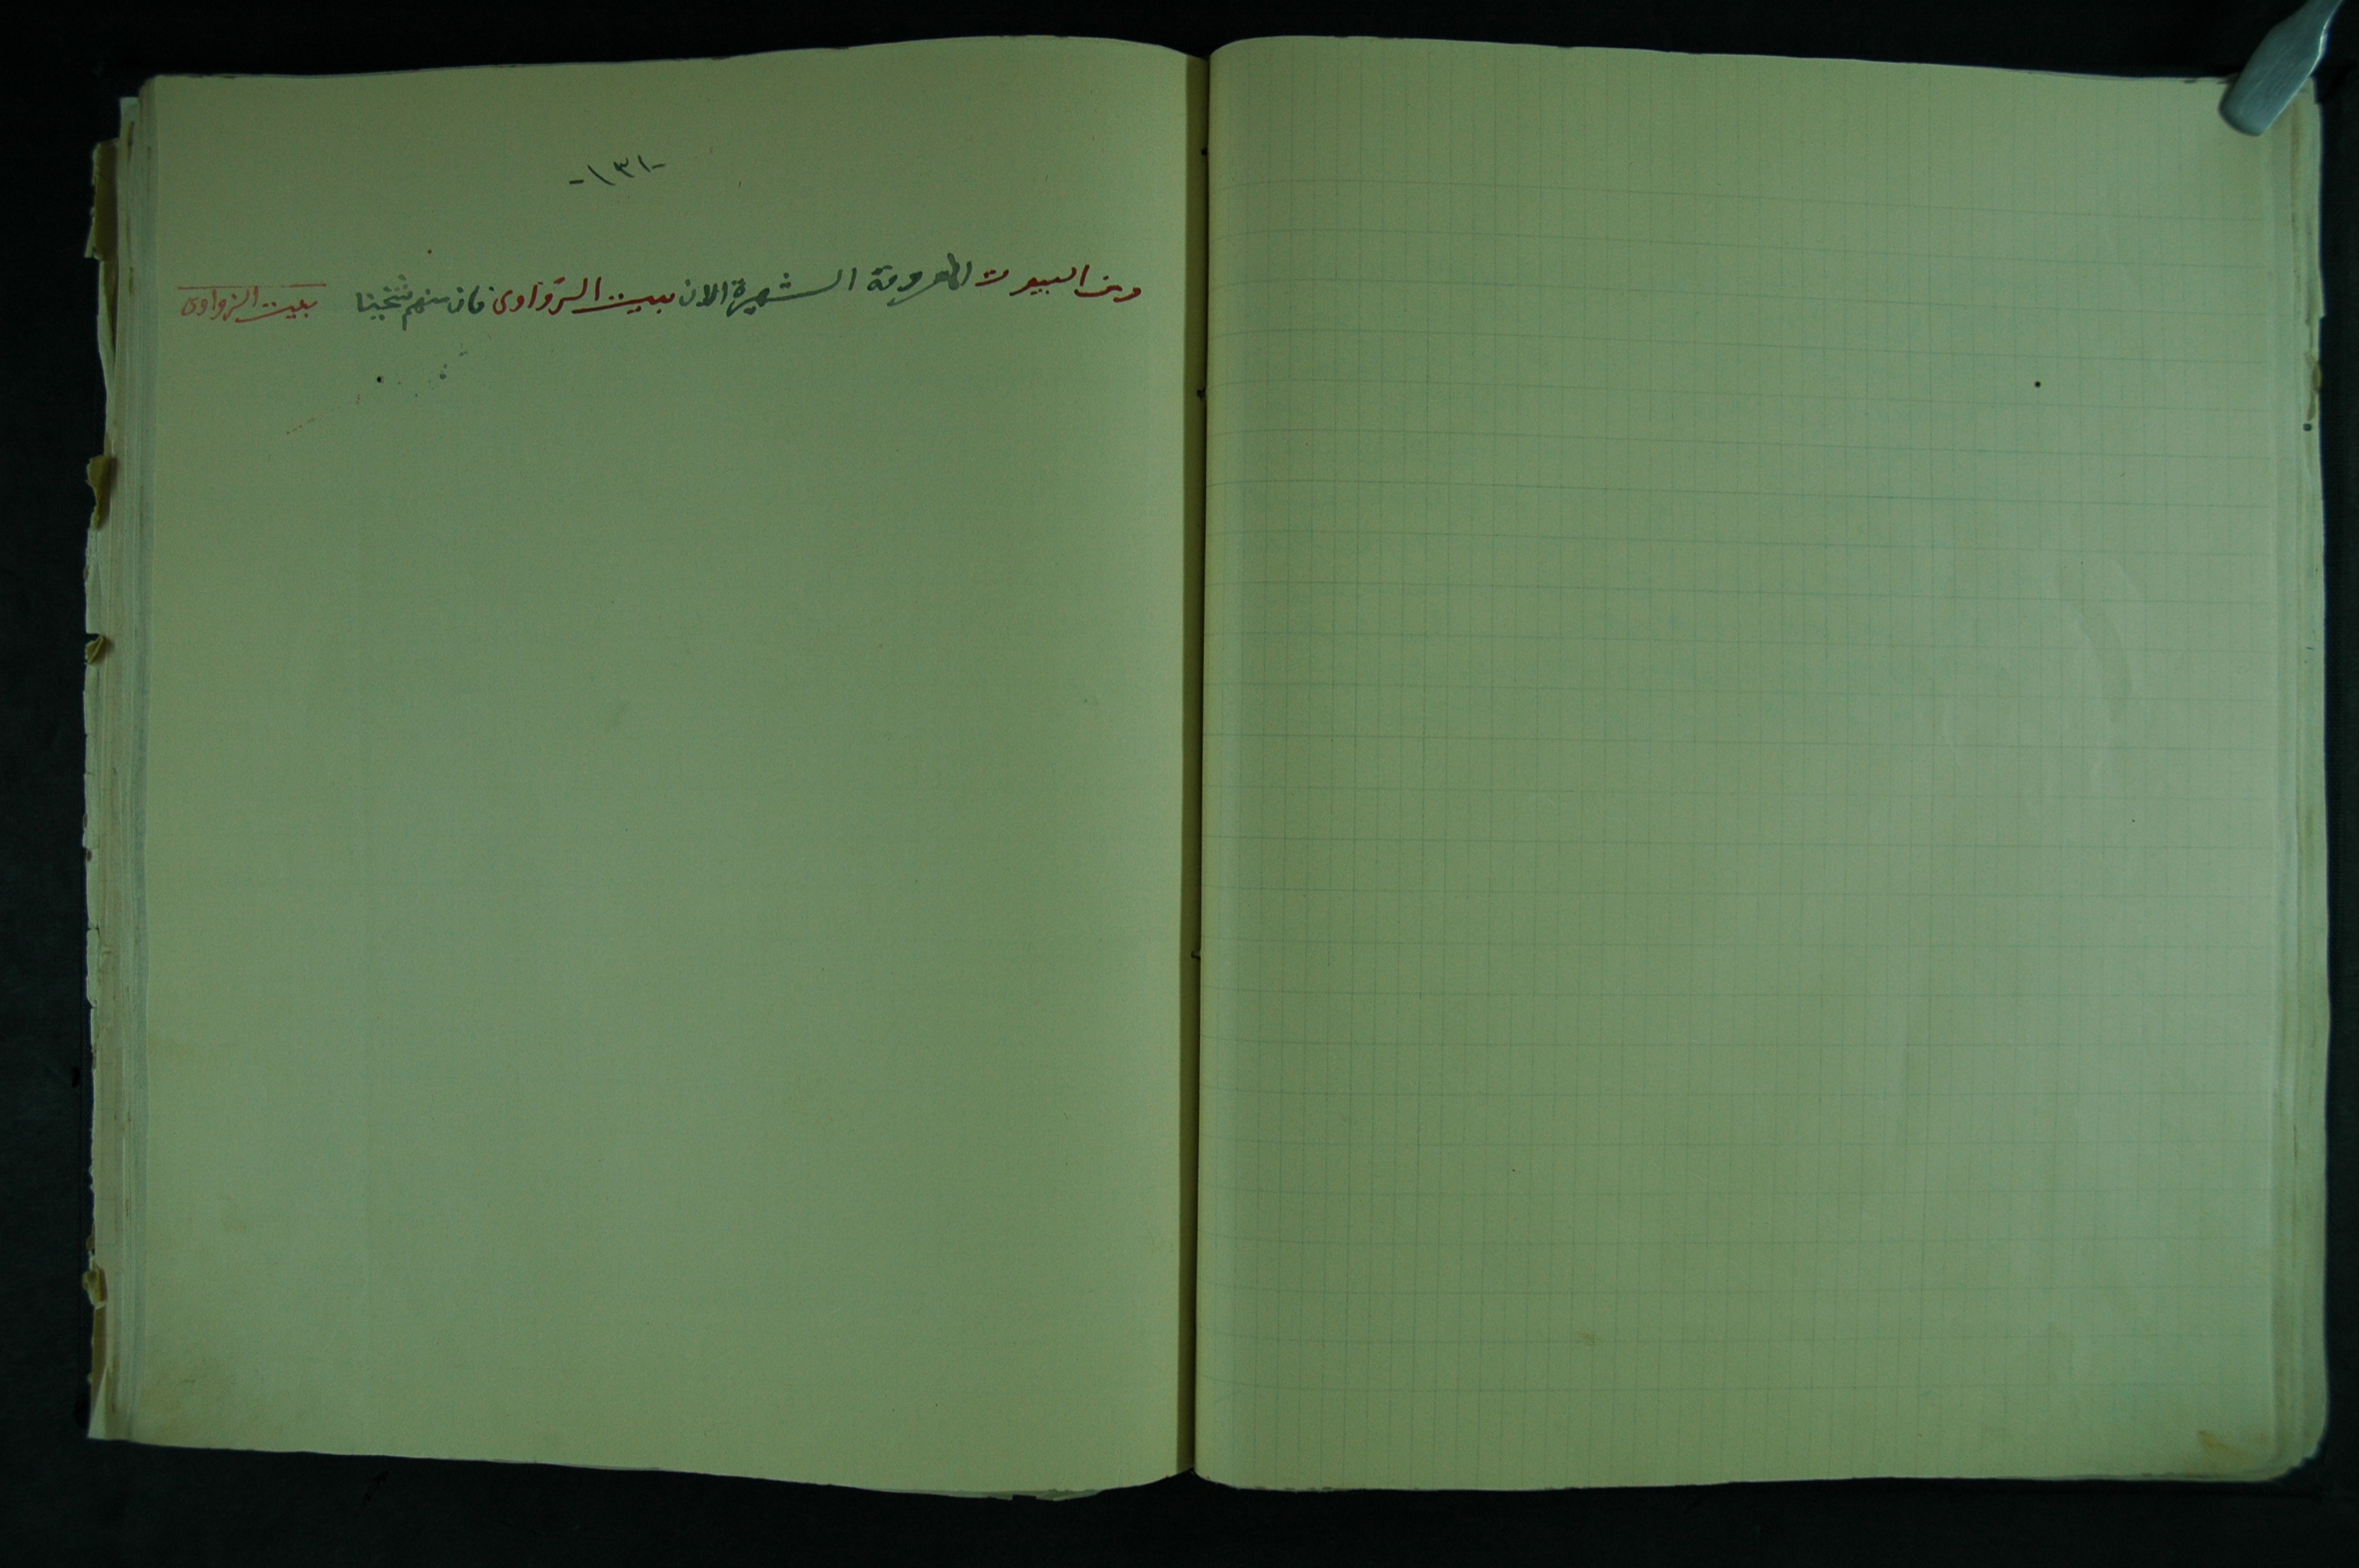 -١٣١-
ومن البيوت المعروفة الشهيرة الان بيت الزواوى فان منهم شيخنا
بيت الزواوى